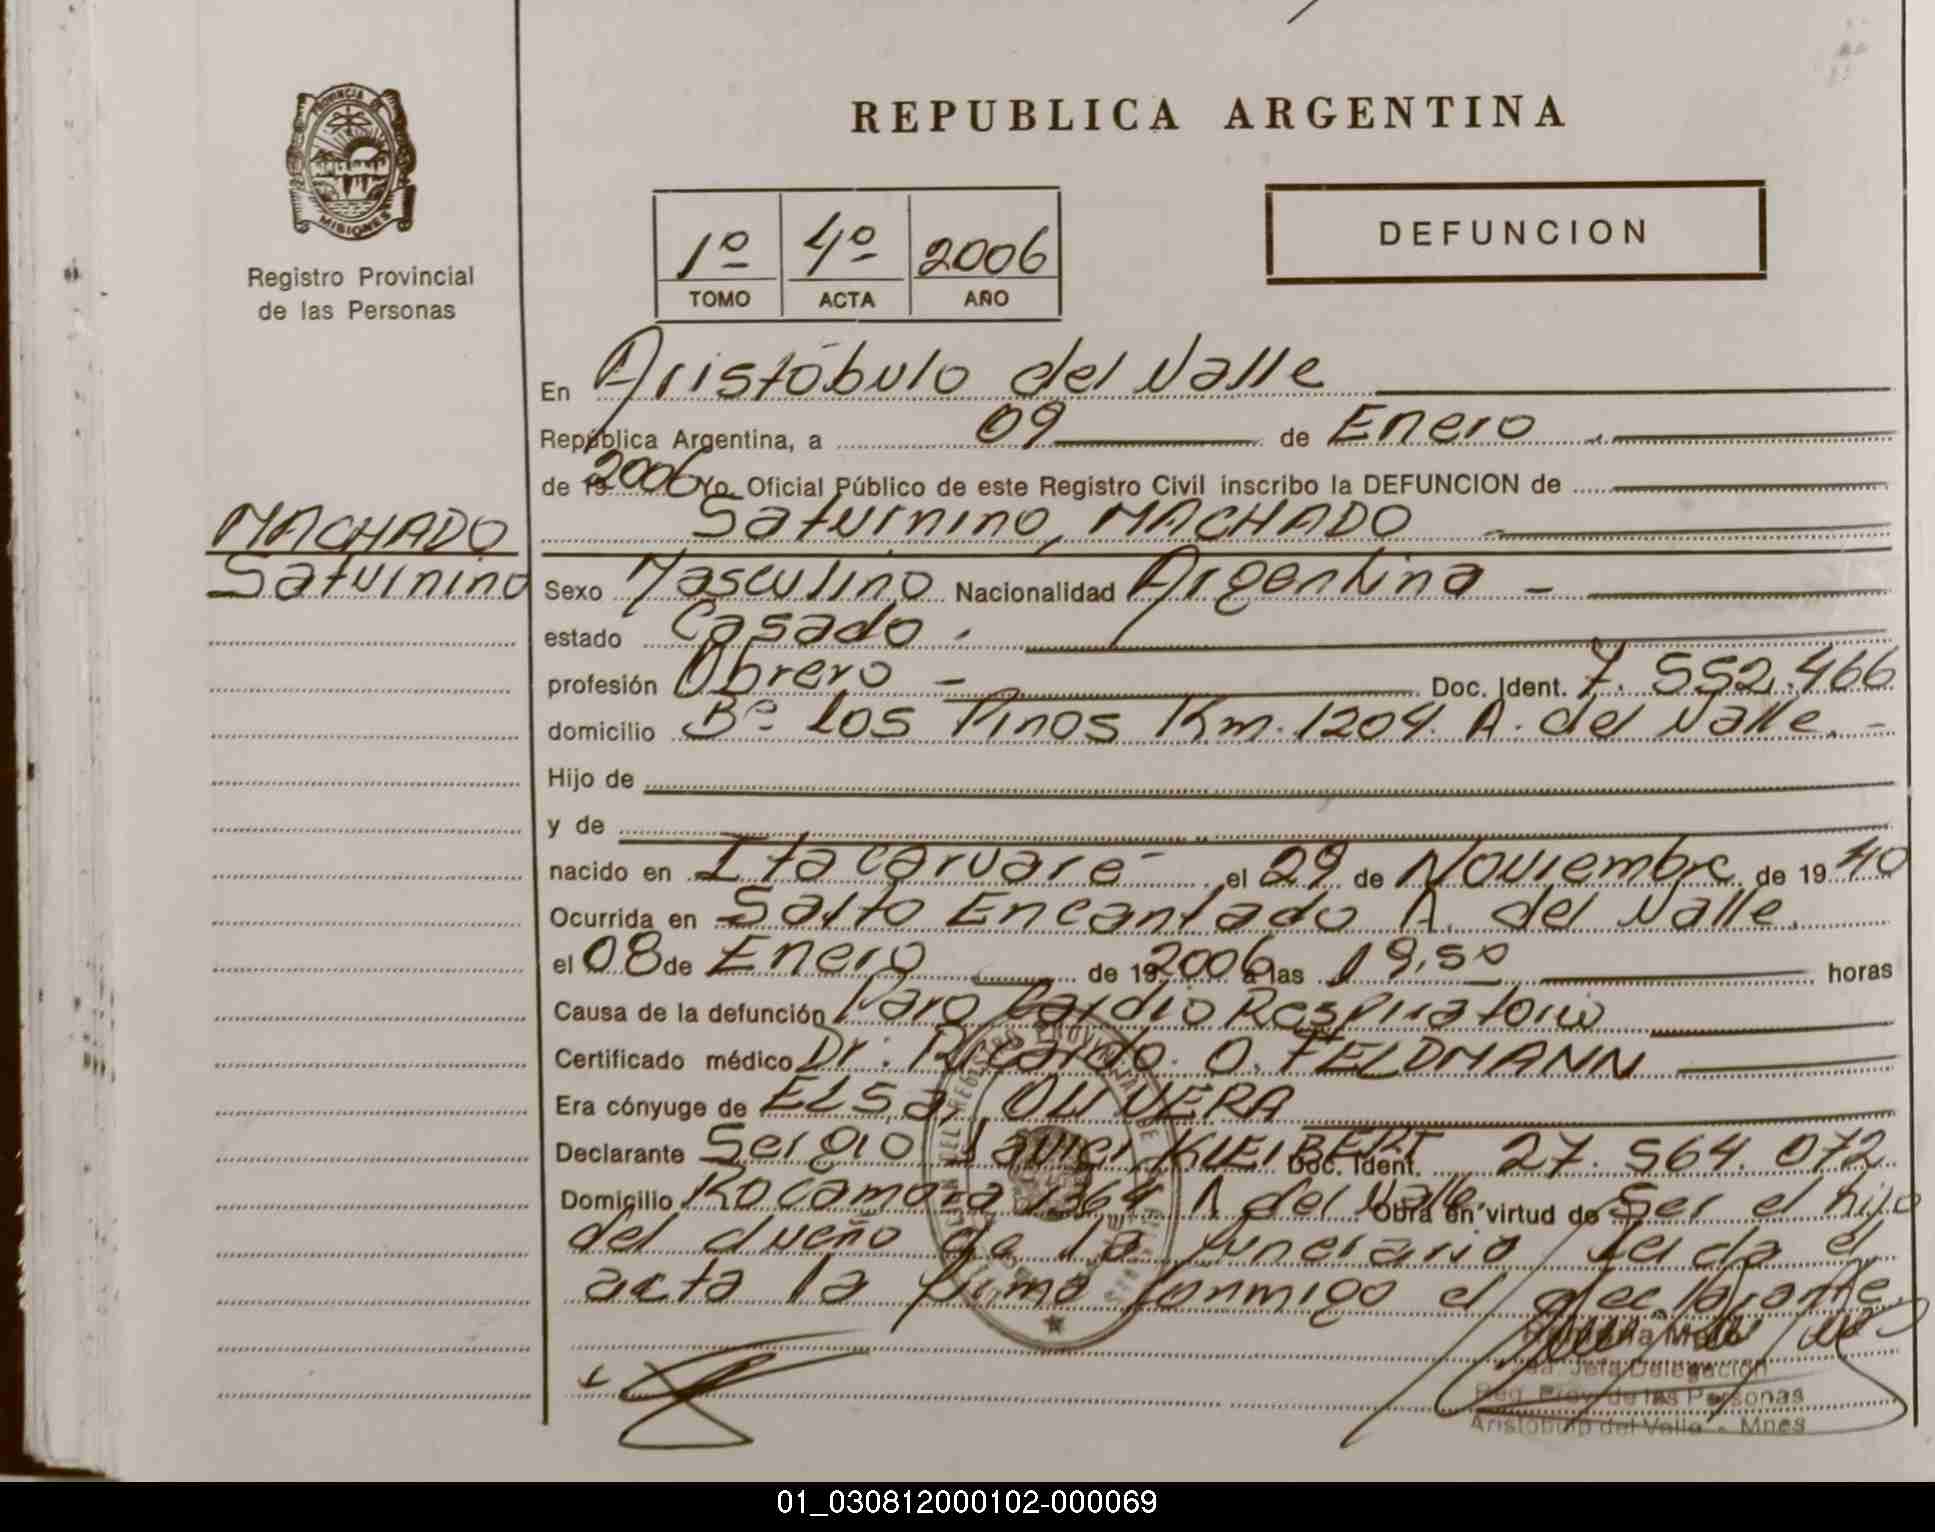 REPUBLICA ARGENTINA
PROVINCIA DE
MISIONES
Registro Provincial
de las Personas
1º 4º 2006
TOMO ACTA AÑO
DEFUNCION
En Aristóbulo del Valle
República Argentina, a 09 de Enero
de 19 2006 Yo, Oficial Público de este Registro Civil inscribo la DEFUNCION de
Saturnino, MACHADO
MACHADO
Saturnino
Sexo Masculino Nacionalidad Argentina -
estado Casado.
profesión Obrero - Doc. Ident. 7.552.466
domicilio Bº los Pinos Km. 1204. A. del Valle. -
Hijo de
y de
nacido en Itacaruaré el 29 de Noviembre de 19 40
Ocurrida en Salto Encantado A. del Valle.
el 08 de Enero de 19 2006 a las 19,50 horas
Causa de la defunción Paro Cardio Respiratorio
Certificado médico Dr: Ricardo. O. FELDMANN
Era cónyuge de ELSA, OLIVERA
Declarante Sergio Javier KLEIBERT Doc. Ident. 27.564.072
Domicilio Rocamora 1364 A del Valle. Obra en virtud de Ser el hijo
del dueño de la funeraria leida el
acta la firma conmigo el declarante.
Jefa Delegación
Reg. Prov. de las Personas
Aristóbulo del Valle - Mnes
01_030812000102-000069